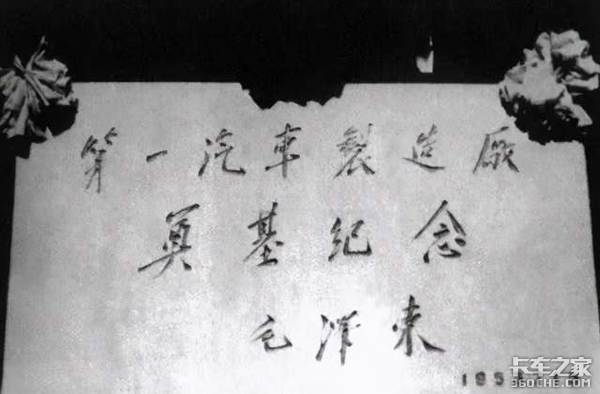 第一汽車製造廠
奠基紀念
毛澤東
195
卡车之家
360CHE.COM